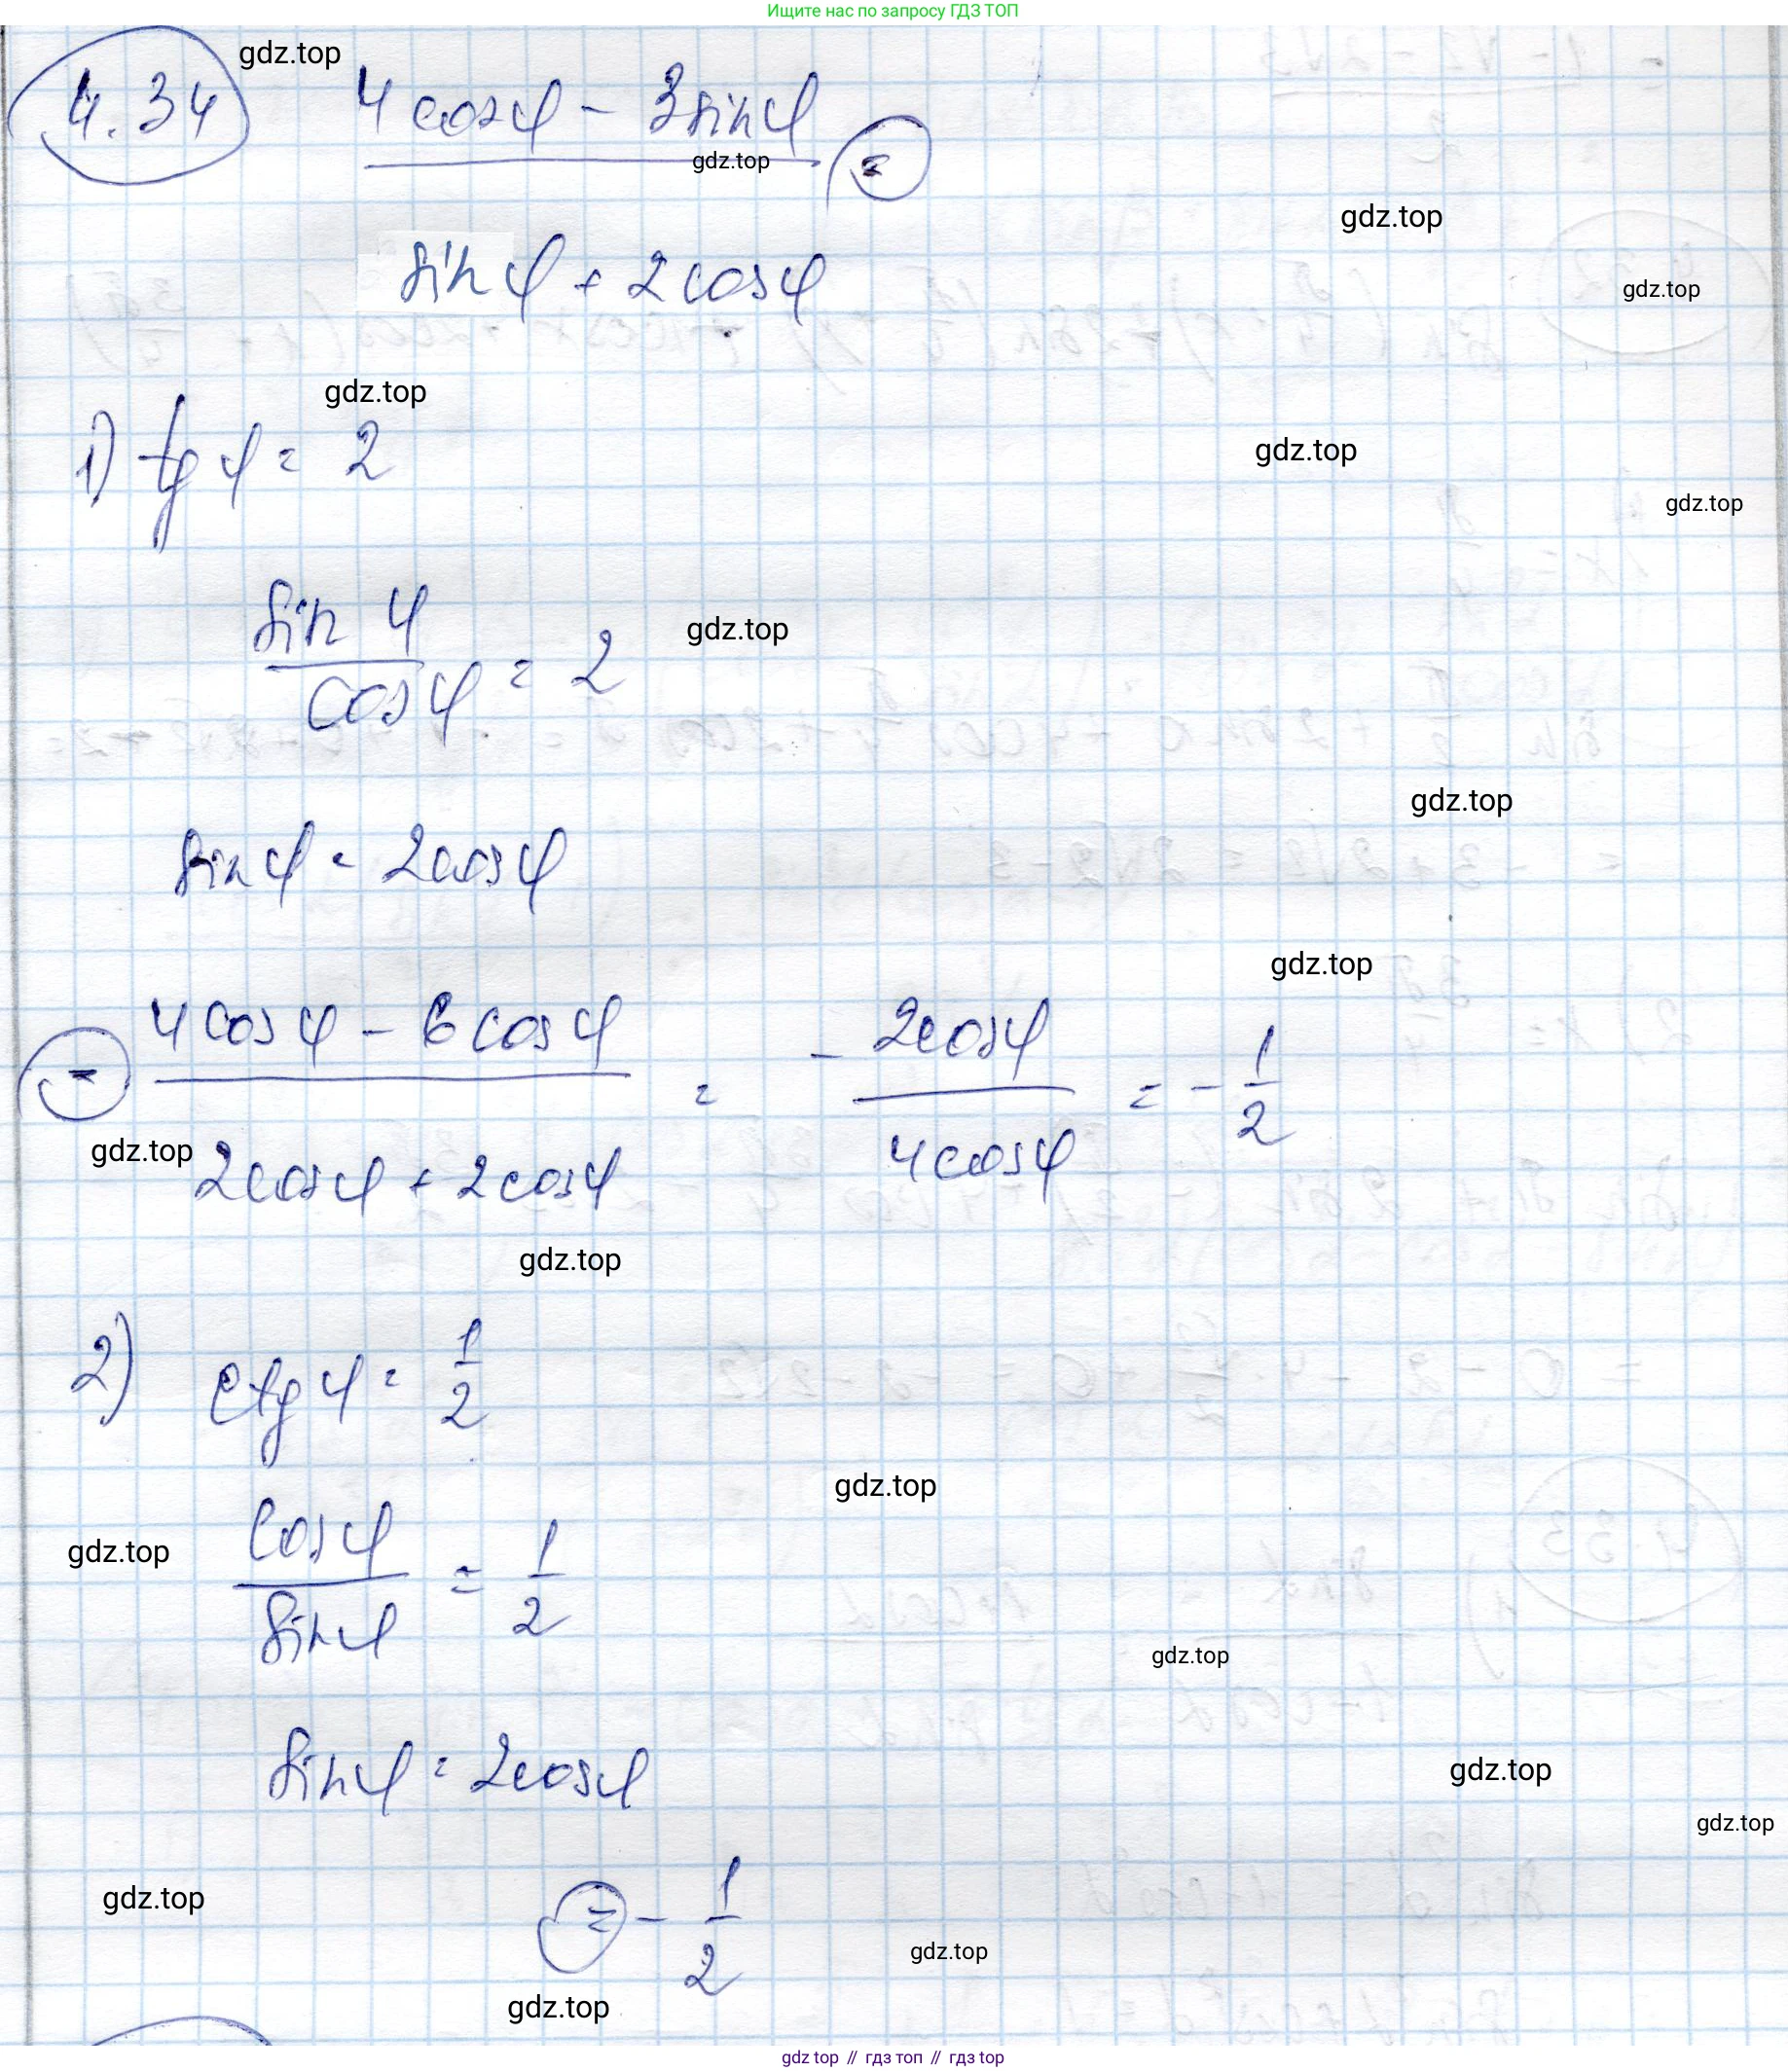 Ищите нас по запросу ГДЗ ТОП
gdz.top
4.34 4cosφ - 3sinφ =
gdz.top
gdz.top
sinφ + 2cosφ
gdz.top
gdz.top
1) tgφ = 2
gdz.top
gdz.top
sinφ
cosφ = 2
gdz.top
gdz.top
sinφ = 2cosφ
gdz.top
= 4cosφ - 6cosφ = - 2cosφ = - 1
2cosφ + 2cosφ 4cosφ 2
gdz.top
gdz.top
2) ctgφ = 1
2
gdz.top
cosφ = 1
sinφ 2
gdz.top
gdz.top
sinφ = 2cosφ
gdz.top
gdz.top
= - 1
2
gdz.top
gdz.top
gdz.top
gdz top // гдз топ // гдз top